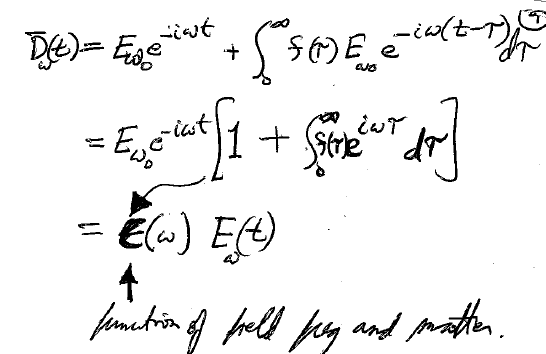 D̄_ω(t) = E_ω₀ e^{-iωt} + ∫₀^∞ f(τ) E_ω₀ e^{-iω(t-τ)} dτ
= E_ω₀ e^{-iωt} [1 + ∫₀^∞ f(τ) e^{iωτ} dτ]
= ε(ω) E_ω(t)
function of field freq and matter.